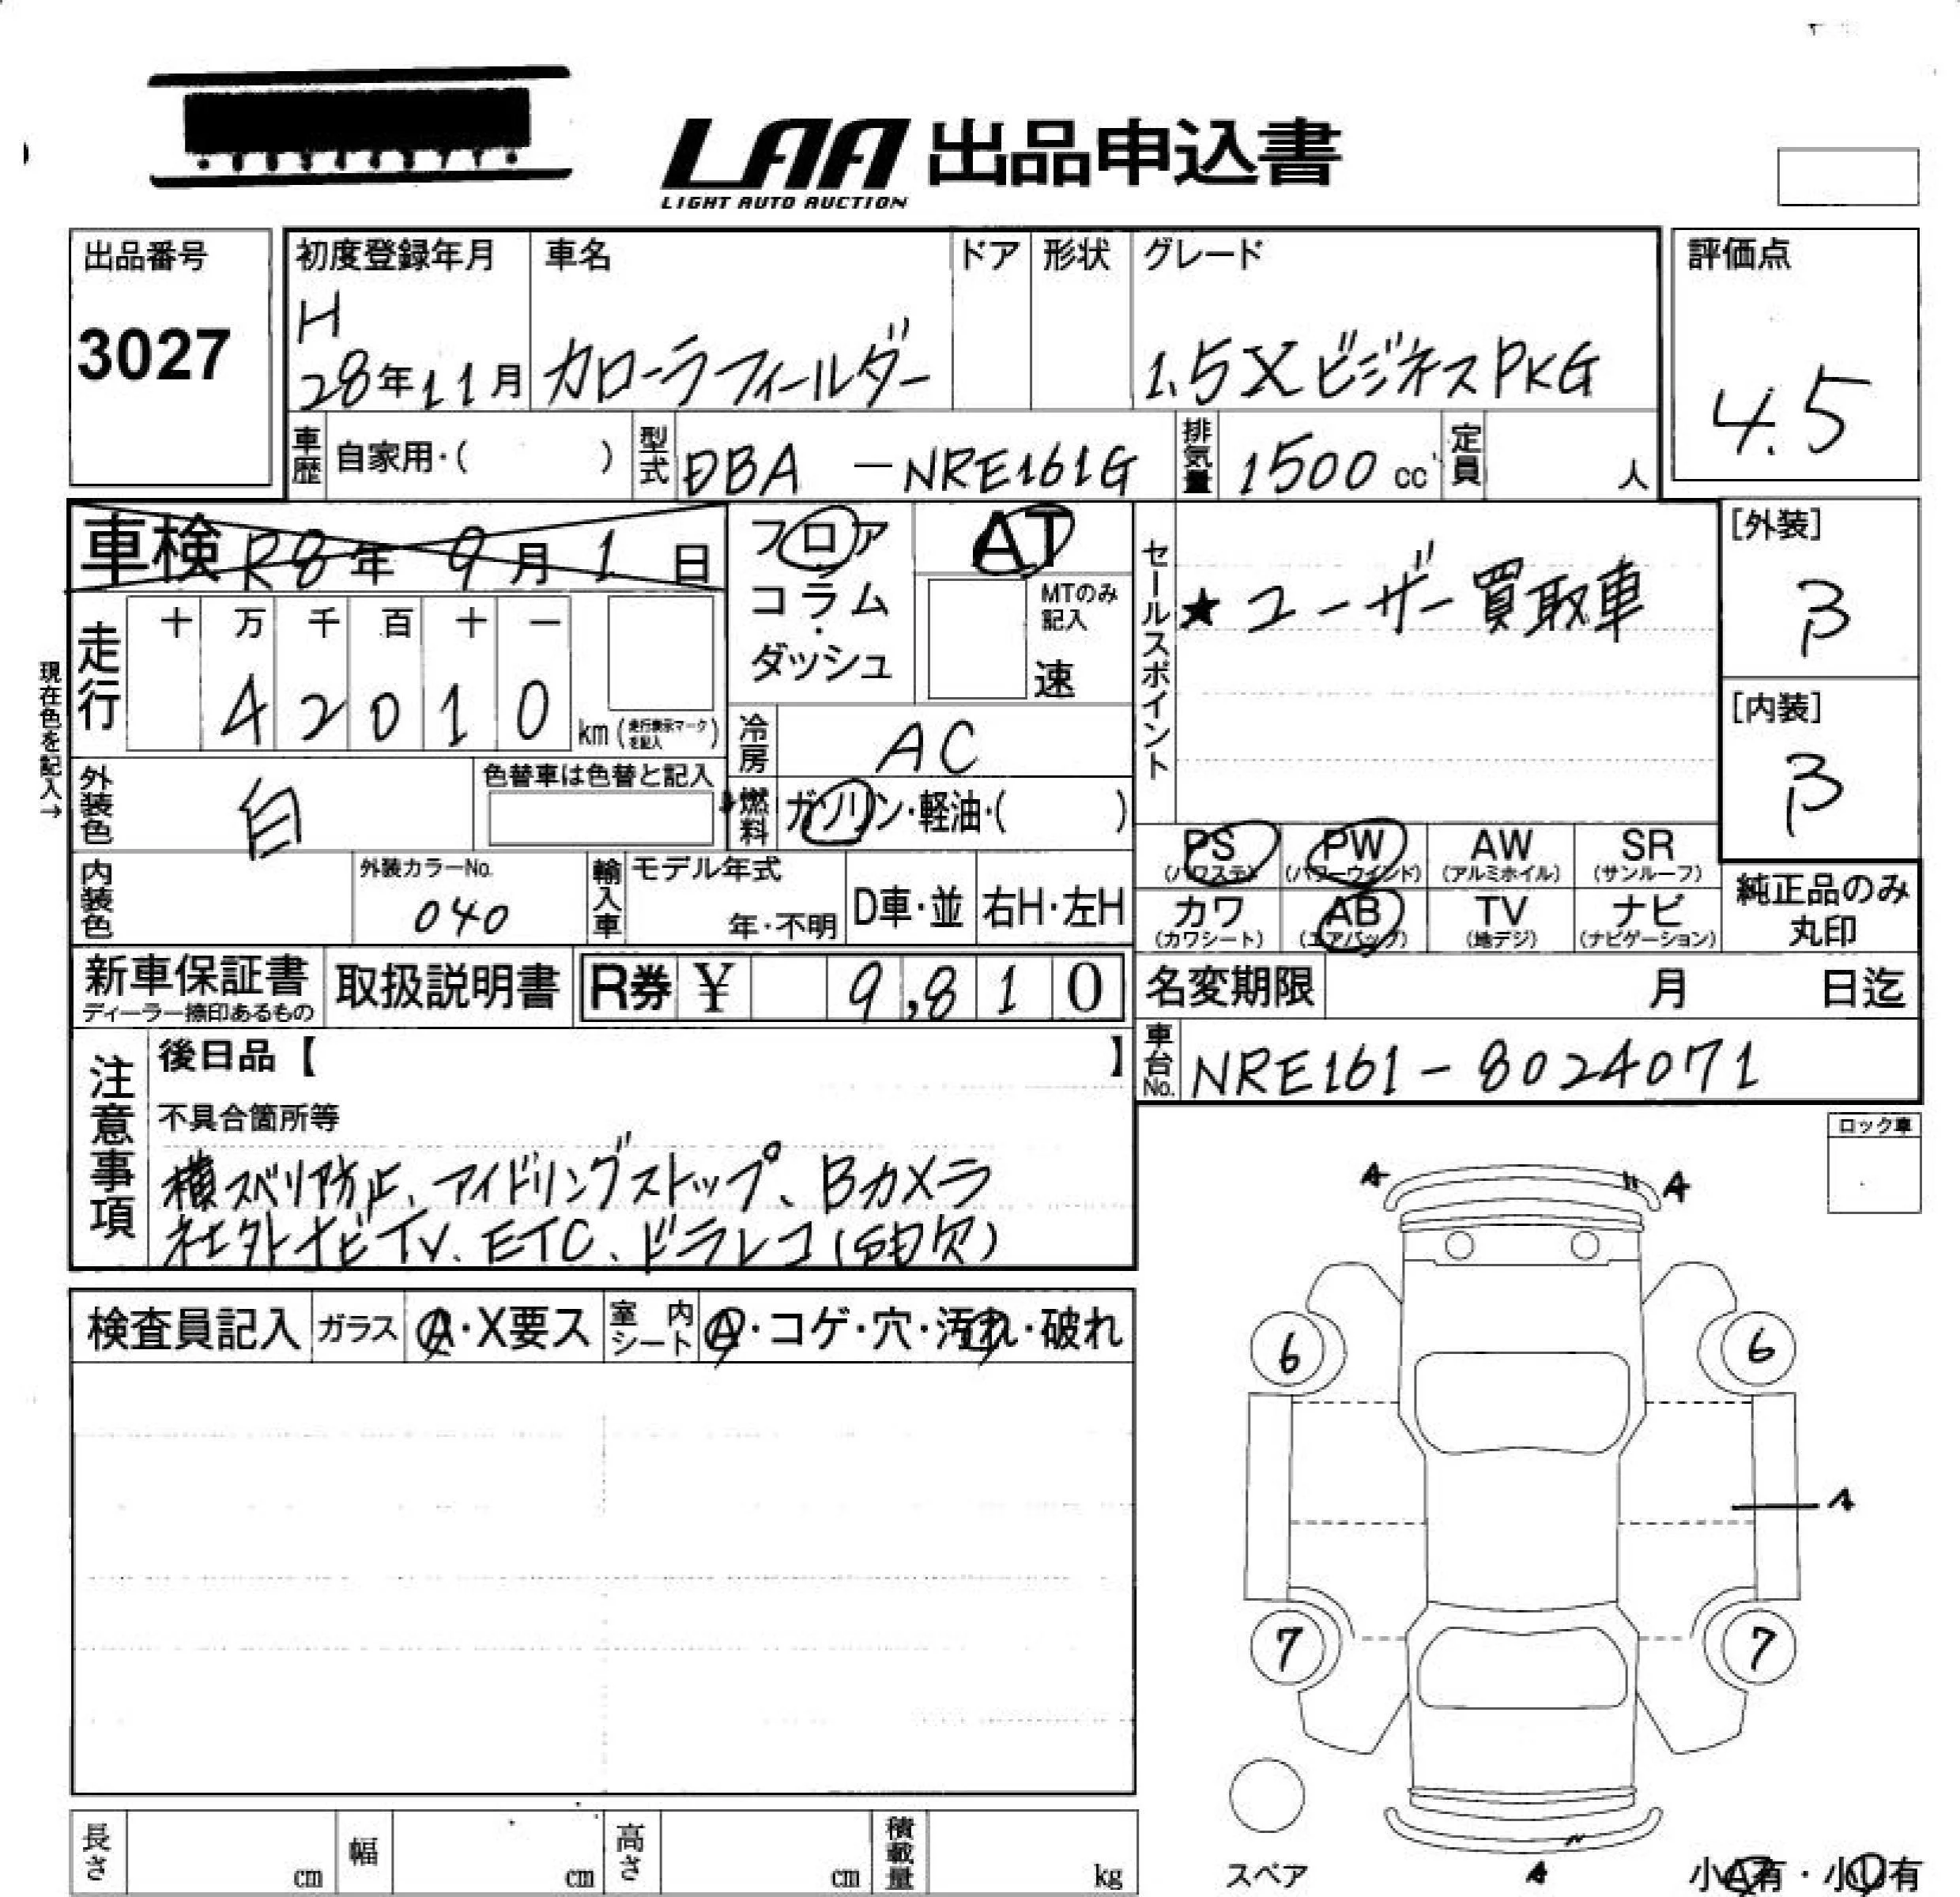 LAA 出品申込書
LIGHT AUTO AUCTION
出品番号
3027
初度登録年月
H
28年11月
車名
カローラフィールダー
ドア
形状
グレード
1.5X ビジネスPKG
評価点
4.5
車歴
自家用・( )
型式
DBA - NRE161G
排気量
1500 cc
定員
人
車検 R8年 9月 1日
フロア
コラム・
ダッシュ
AT
MTのみ
記入
速
セールスポイント
★ユーザー買取車
[外装]
B
[内装]
B
現在色を記入→
走行
十 万 千 百 十 一
4 2 0 1 0
km (走行表示マークを記入)
冷房
AC
外装色
白
色替車は色替と記入
燃料
ガソリン・軽油・( )
PS
(パワステ)
PW
(パワーウィンド)
AW
(アルミホイル)
SR
(サンルーフ)
カワ
(カワシート)
AB
(エアバッグ)
TV
(地デジ)
ナビ
(ナビゲーション)
純正品のみ
丸印
内装色
外装カラーNo.
040
輸入車
モデル年式
年・不明
D車・並
右H・左H
新車保証書
ディーラー捺印あるもの
取扱説明書
R券 ¥ 9,810
名変期限
月 日迄
車台No.
NRE161-8024071
注意事項
後日品【 】
不具合箇所等
横スベリ防止、アイドリングストップ、Bカメラ
社外ナビTV、ETC、ドラレコ(SD欠)
ロック車
A
A
6
6
A
7
7
A
検査員記入
ガラス
A・X要ス
室内
シート
A・コゲ・穴・汚れ・破れ
長さ
cm
幅
cm
高さ
cm
積載量
kg
スペア
小A有・小U有